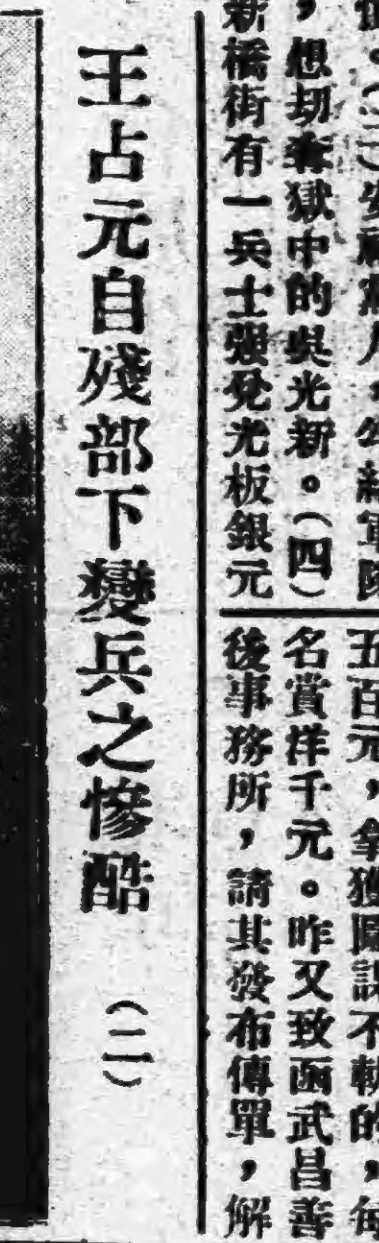 。（三）安福黨
，想刧奪獄中的吳光新。（四）
新橋街有一兵士強兌光板銀元
五百元，拿獲圖謀不軌的，每
名賞祥千元。昨又致函武昌善
後事務所，請其發布傳單，解
王占元自殘部下變兵之慘酷　（二）